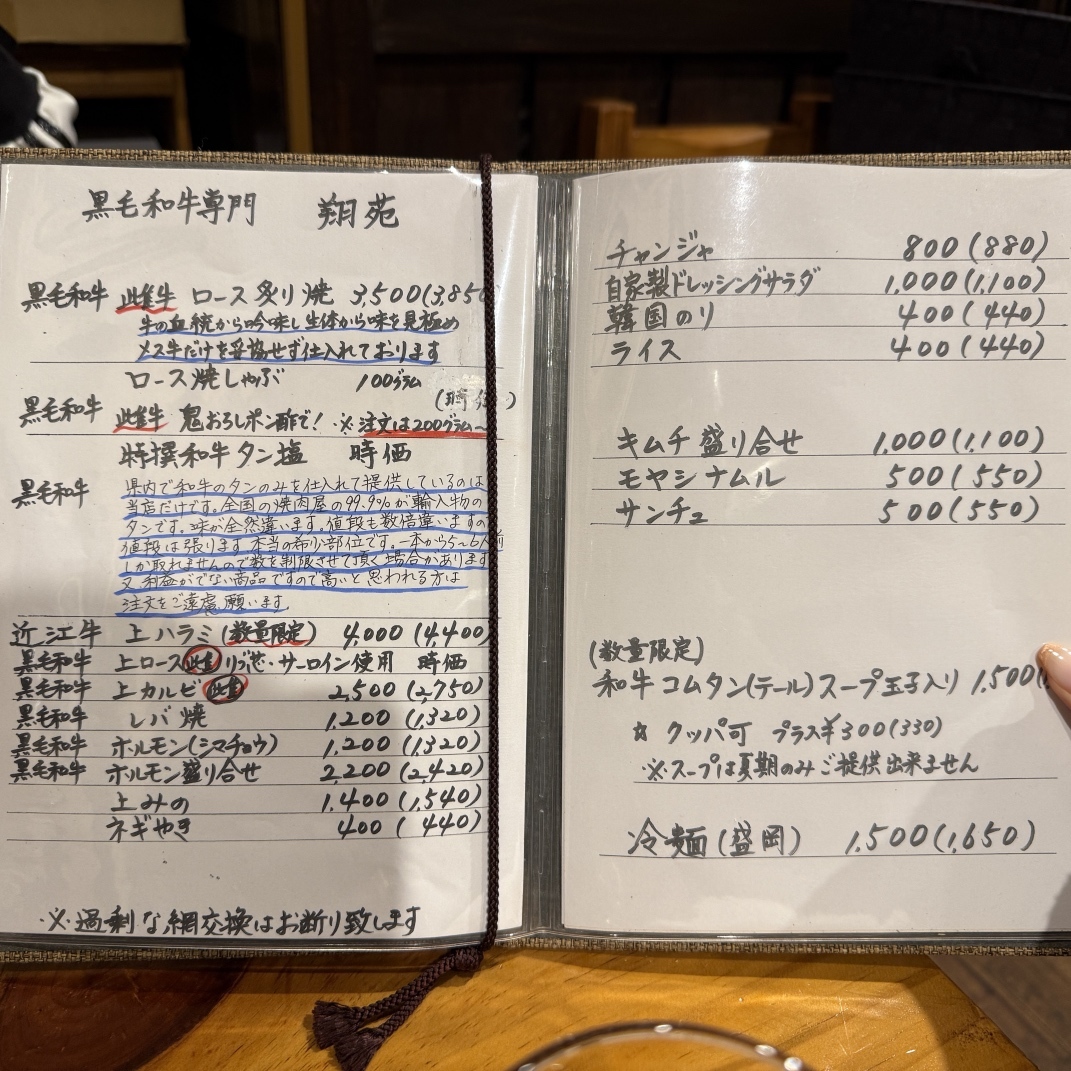 黒毛和牛専門 翔苑
黒毛和牛 雌牛 ロース炙り焼 3,500(3,850
牛の血統から吟味し生体から味を見極め
メス牛だけを妥協せず仕入れております
ロース焼しゃぶ 100グラム
(時価)
黒毛和牛 雌牛 鬼おろしポン酢で! ※注文は200グラム~
特撰和牛タン塩 時価
黒毛和牛
県内で和牛のタンのみを仕入れて提供しているのは
当店だけです。全国の焼肉屋の99.9%が輸入物の
タンです。味が全然違います。値段も数倍違いますの
値段は張ります 本当の希少部位です。一本から5~6人前
しか取れませんので数を制限させて頂く場合があります
又、利益がでない商品ですので高いと思われる方は
注文をご遠慮願います
近江牛 上ハラミ(数量限定) 4,000(4,400)
黒毛和牛 上ロース 雌 リブ芯・サーロイン使用 時価
黒毛和牛 上カルビ 雌 2,500(2,750)
黒毛和牛 レバ焼 1,200(1,320)
黒毛和牛 ホルモン(シマチョウ) 1,200(1,320)
黒毛和牛 ホルモン盛り合せ 2,200(2,420)
上みの 1,400(1,540)
ネギやき 400(440)
・※過剰な網交換はお断り致します
チャンジャ 800(880)
自家製ドレッシングサラダ 1,000(1,100)
韓国のり 400(440)
ライス 400(440)
キムチ盛り合せ 1,000(1,100)
モヤシナムル 500(550)
サンチュ 500(550)
(数量限定)
和牛コムタン(テール)スープ玉子入り 1,500(
☆ クッパ可 プラス¥300(330)
※スープは夏期のみご提供出来ません
冷麺(盛岡) 1,500(1,650)